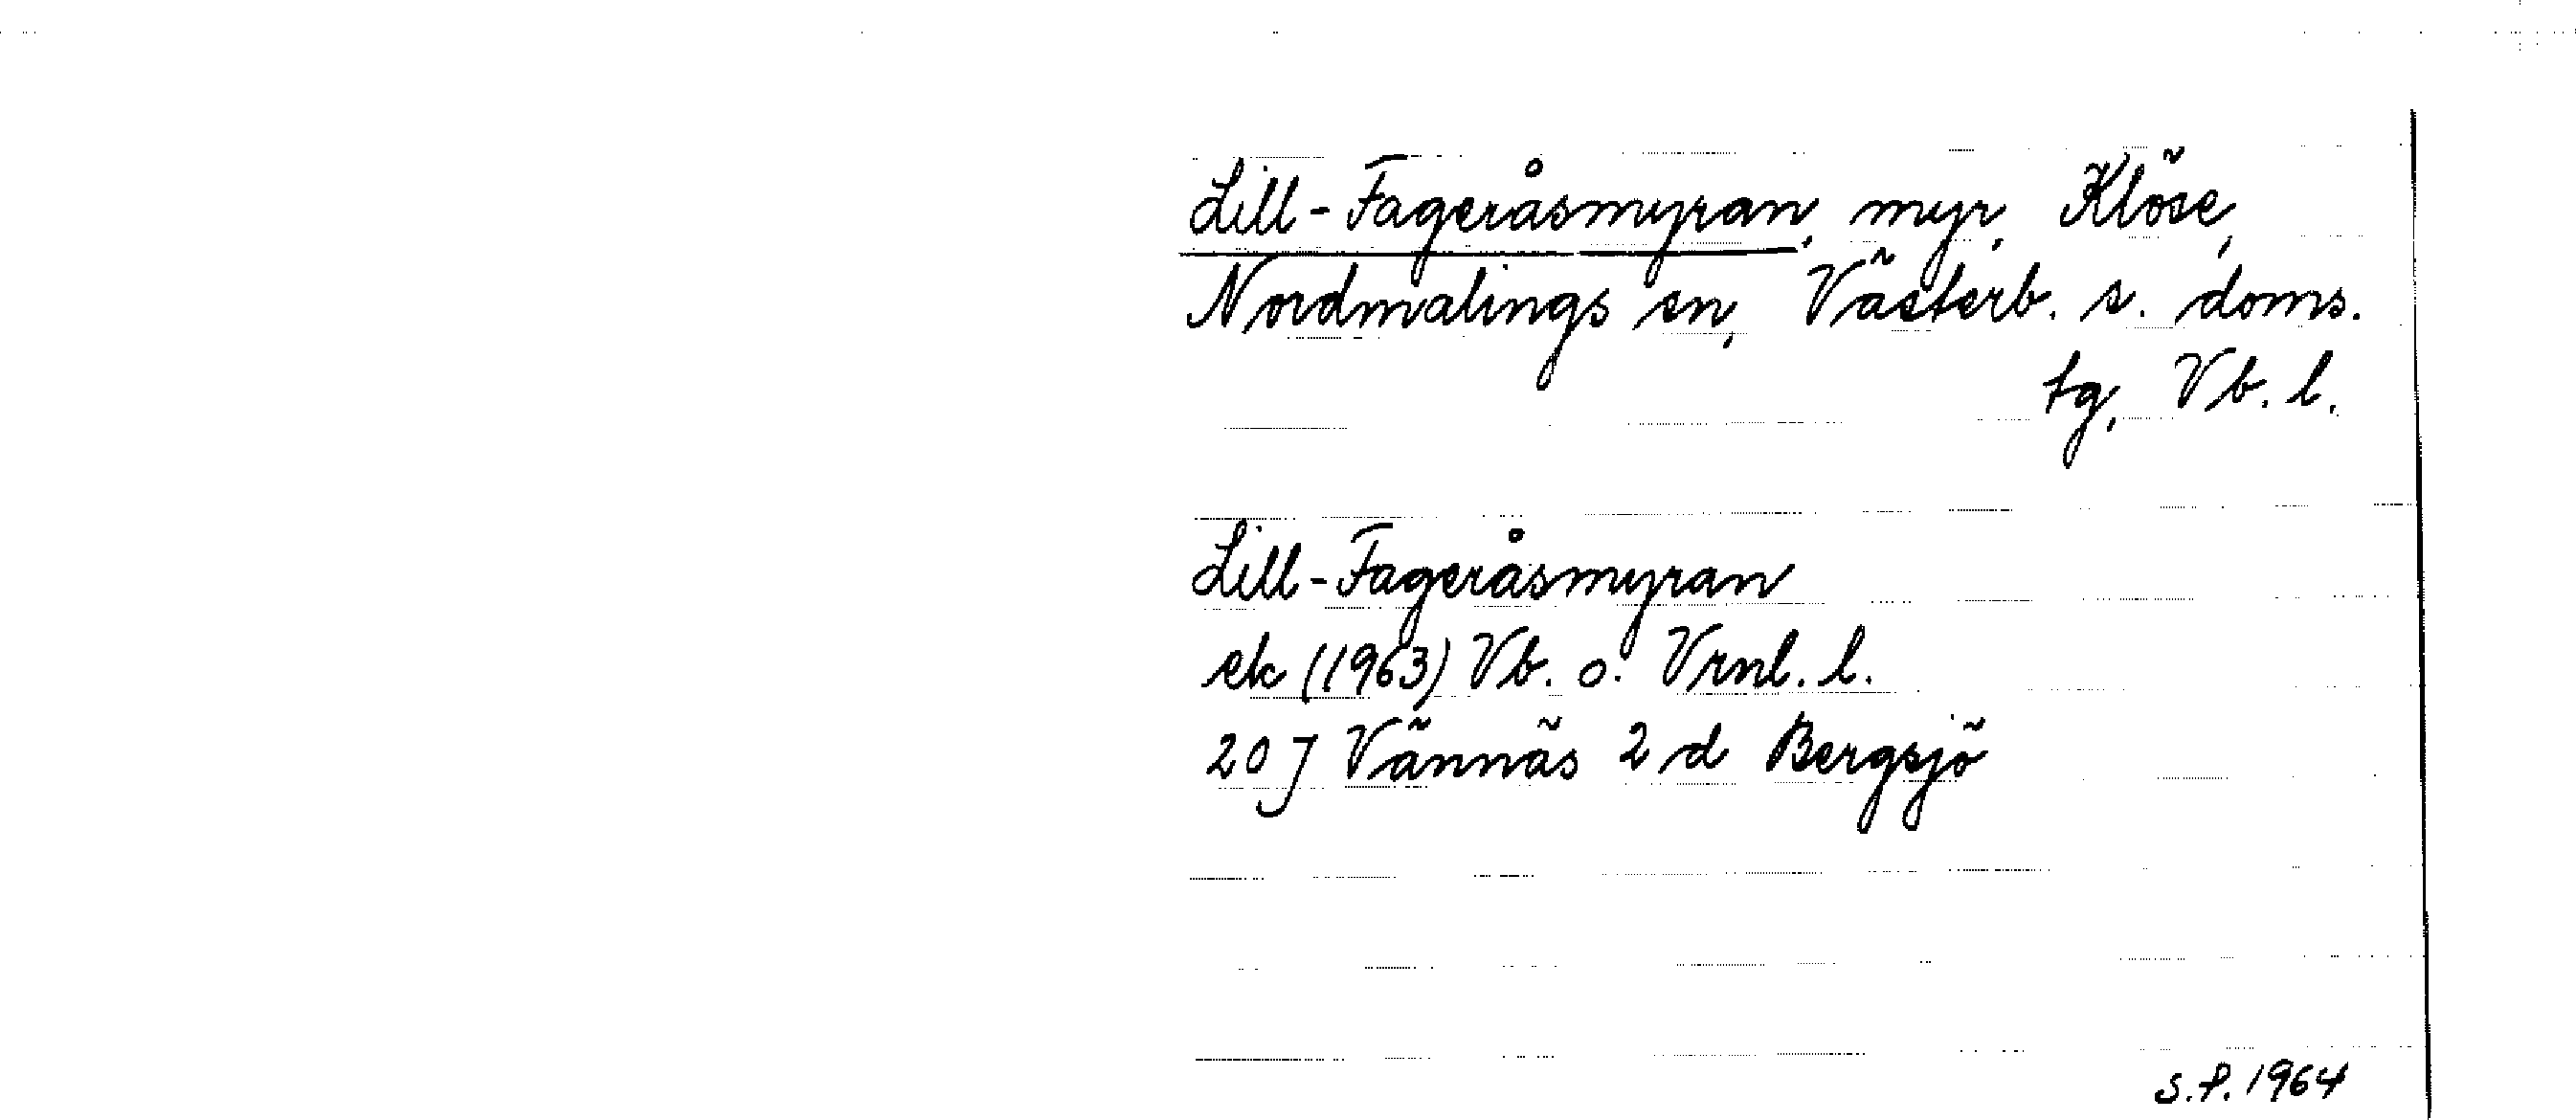 Lill-Fageråsmyran, myr, Klöse,
Nordmalings sn, Västerb. s. doms.
tg, Vb. l.
Lill-Fageråsmyran
ek (1963) Vb. o. Vrnl. l.
20 J Vännäs 2 d Bergsjö
S.P. 1964